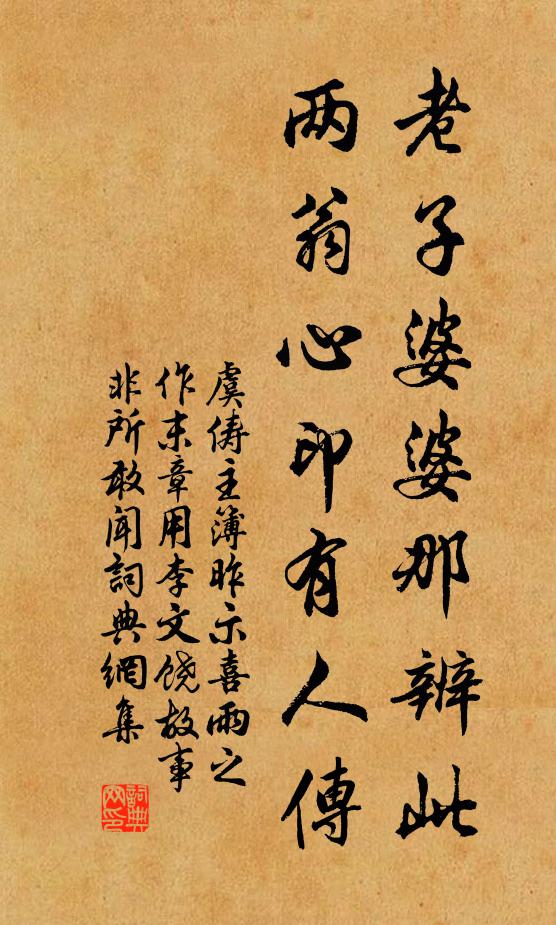 老子婆婆那辨此
两翁心印有人傳
虞儔主簿昨示喜雨之
作末章用李文饶故事
非所敢闻詞典網集
詞典网印